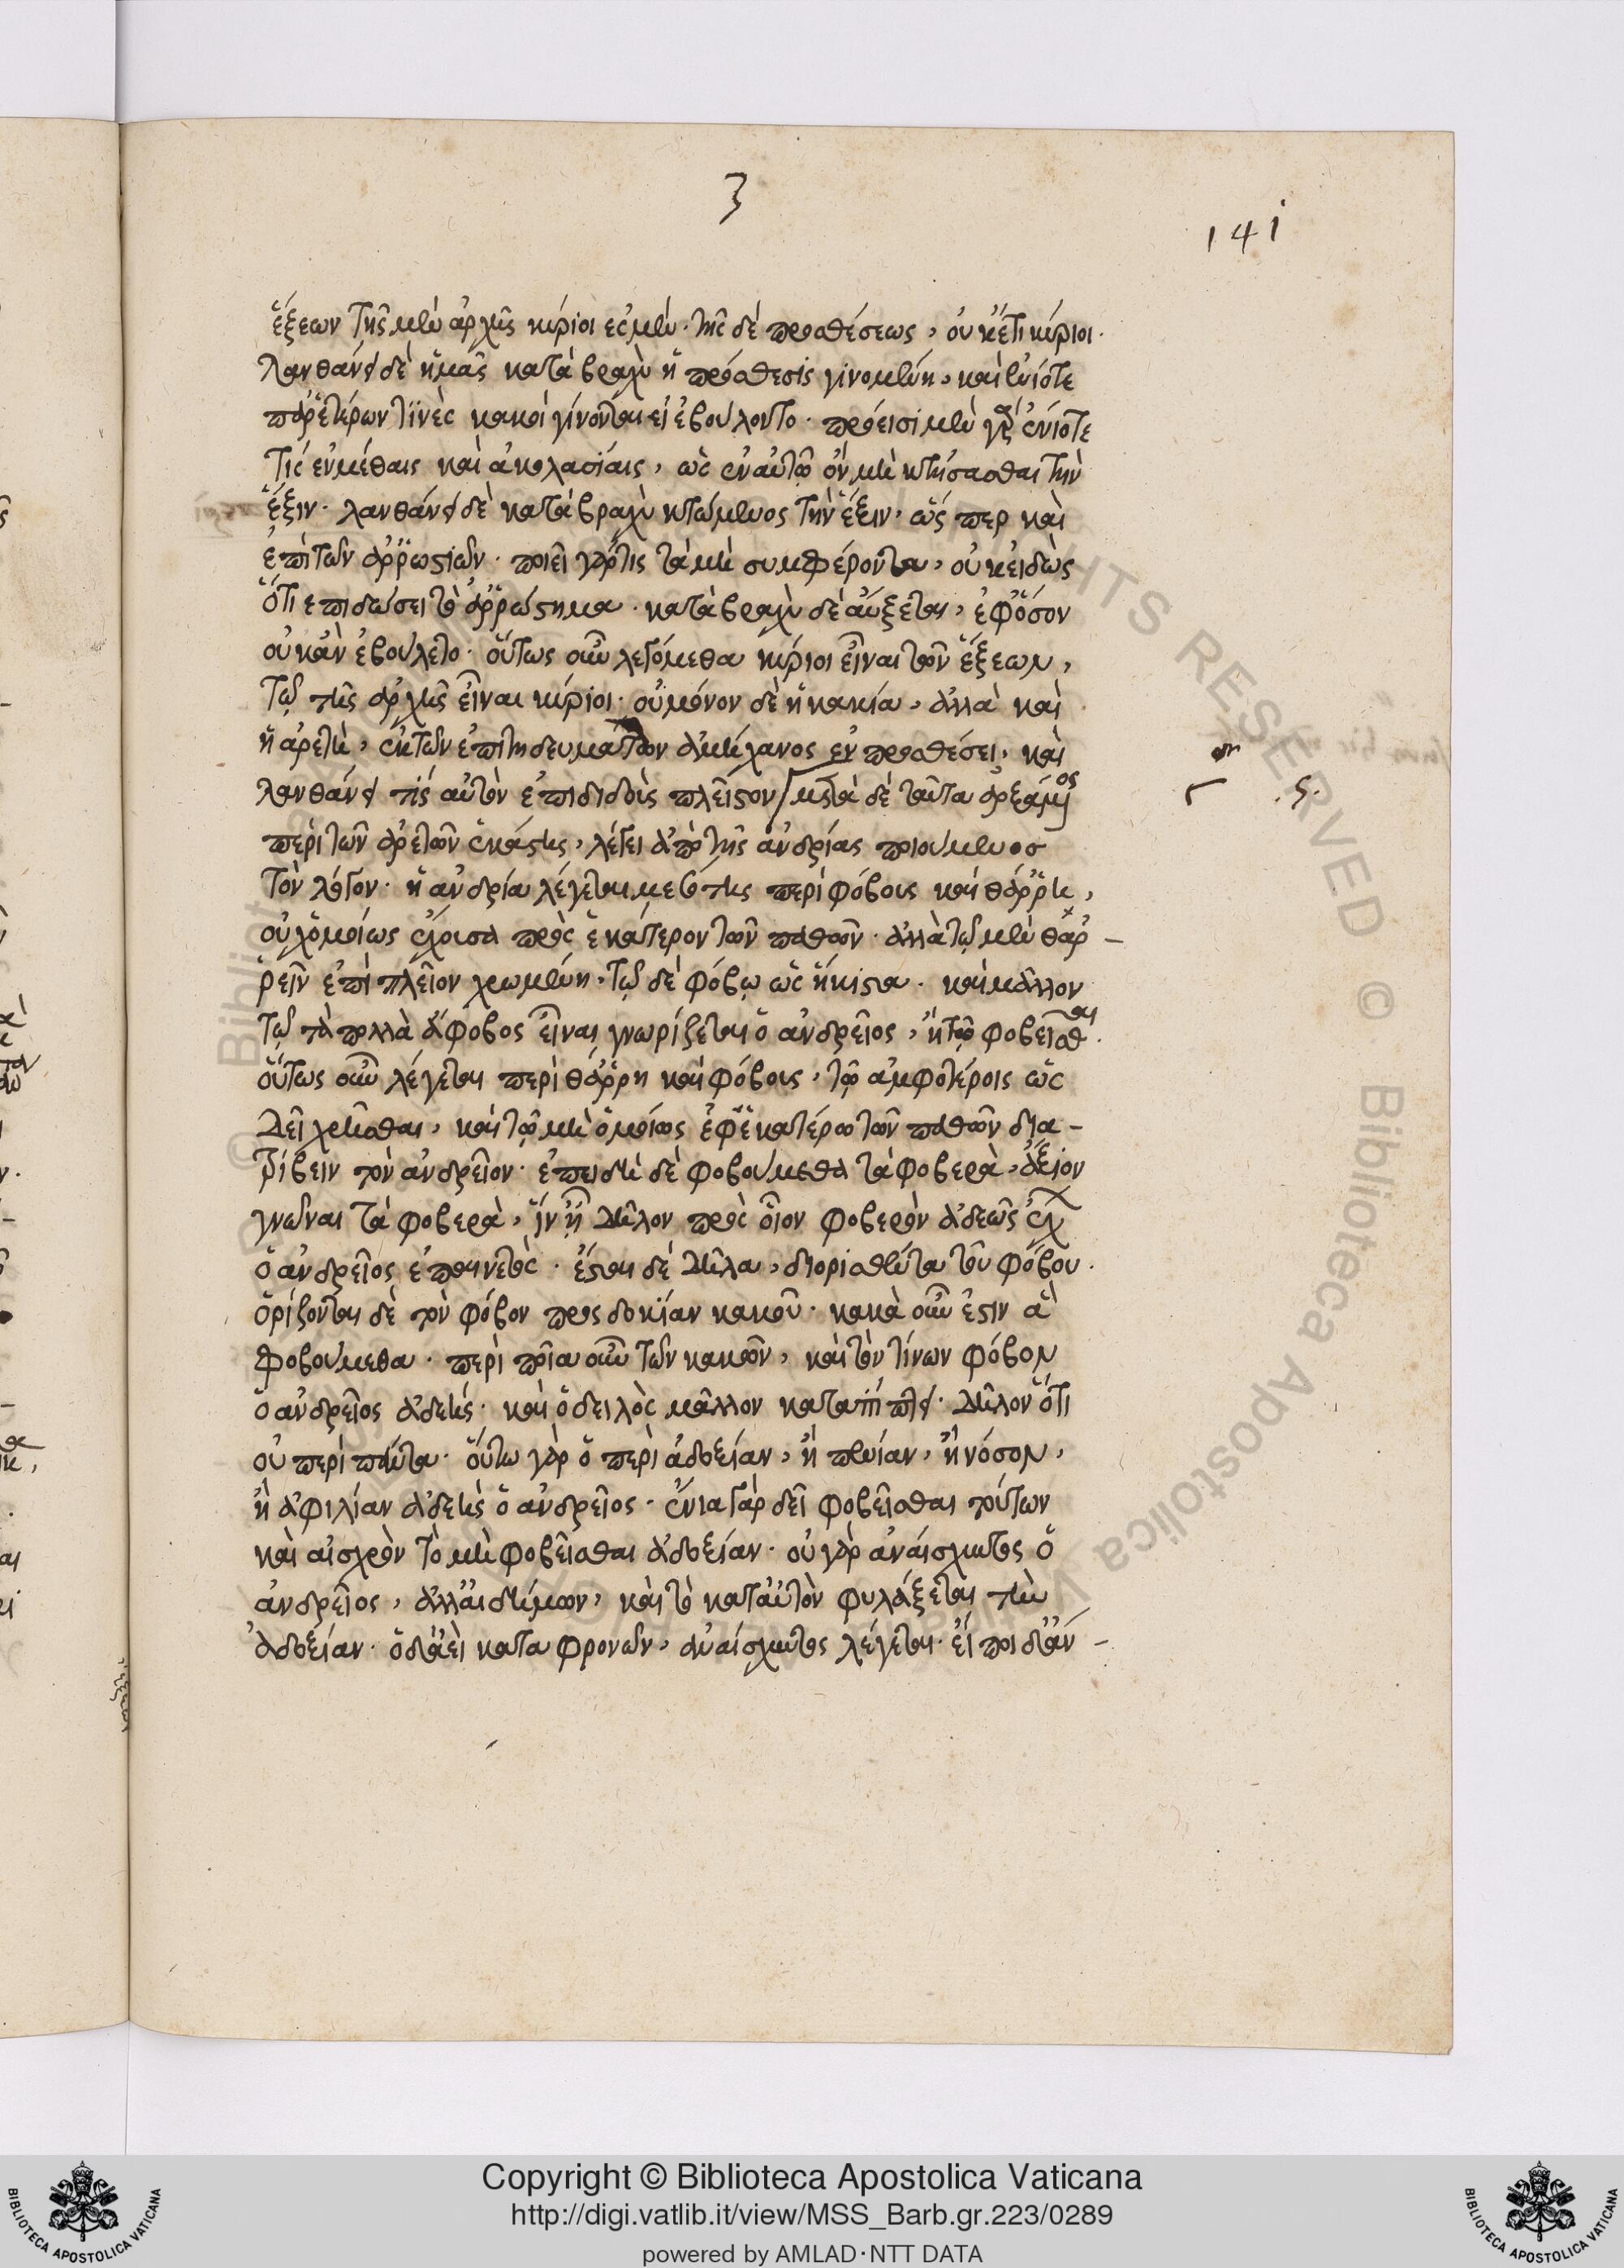 3
141
ἕξεων τῆς μὲν ἀρχῆς κύριοι ἐσμέν· τῆς δὲ προσθέσεως, οὐκέτι κύριοι·
λανθάνει δὲ ἡμᾶς κατὰ βραχὺ ἡ πρόσθεσις γινομένη, καὶ ἐνίοτε
πόρρετέρων τινὲς κακοὶ γίνονται εἰ ἐβούλοντο· πρόεισι μὲν γὰρ ἐνίοτε
τίς ἐν μέθαις καὶ ἀκολασίαις, ὡς ἐν αὐτῷ ὂν μὴ κτήσασθαι τὴν
ἕξιν· λανθάνει δὲ κατὰ βραχὺ κτώμενος τὴν ἕξιν, ὥς περ καὶ
ἐπὶ τῶν ἀῤῥωστιῶν· ποιεῖ γάρ τις τὰ μὴ συμφέροντα, οὐκ εἰδὼς
ὅτι ἐπιδώσει τὸ ἀῤῥώστημα· κατὰ βραχὺ δὲ αὔξεται, ἐφ' ὅσον
οὐκ ἂν ἐβούλετο· οὕτως οὖν λεγόμεθα κύριοι εἶναι τῶν ἕξεων,
τῷ τῆς ἀρχῆς εἶναι κύριοι· οὐ μόνον δὲ ἡ κακία, ἀλλὰ καὶ
ἡ ἀρετὴ, ἐκ τῶν ἐπιτηδευμάτων ἀμήχανος ἐν προσθέσει, καὶ
λανθάνει τίς αὐτὸν ἐπιδιδοὺς πλεῖστον/ μετὰ δὲ ταῦτα ἀρξάμενος
περὶ τῶν ἀρετῶν ἑκάστης, λέγει ἀπὸ τῆς ἀνδρίας ποιούμενος
τὸν λόγον· ἡ ἀνδρία λέγεται μεσότης περὶ φόβους καὶ θάῤῥη,
οὐχ ὁμοίως ἔχουσα πρὸς ἑκάτερον τῶν παθῶν· ἀλλὰ τῷ μὲν θαῤ-
ῥεῖν ἐπὶ πλεῖον χρωμένη, τῷ δὲ φόβῳ ὡς ἥκιστα· καὶ μᾶλλον
τῷ τὰ πολλὰ ἄφοβος εἶναι γνωρίζεται ὁ ἀνδρεῖος, ἢ τῷ φοβεῖσθαι·
οὕτως οὖν λέγεται περὶ θάῤῥη καὶ φόβους, τῷ ἀμφοτέροις ὡς
δεῖ χρῆσθαι, καὶ τῷ μὴ ὁμοίως ἐφ' ἑκατέρω τῶν παθῶν δια-
τρίβειν τὸν ἀνδρεῖον· ἐπειδὴ δὲ φοβούμεθα τὰ φοβερὰ, ἄξιον
γνῶναι τὰ φοβερὰ, ἵν' ᾖ δῆλον πρὸς οἷον φοβερὸν ἀδεῶς ἔχει
ὁ ἀνδρεῖος ἐπαινετὸς· ἔσται δὲ δῆλα, διορισθέντα τοῦ φόβου·
ὁρίζονται δὲ τὸν φόβον προσδοκίαν κακοῦ· κακὰ οὖν ἐστιν ἃ
φοβούμεθα· περὶ ποῖα οὖν τῶν κακῶν, καὶ τὸν τίνων φόβον
ὁ ἀνδρεῖος ἀδεής· καὶ ὁ δειλὸς μᾶλλον καταπίπτει· δῆλον ὅτι
οὐ περὶ πάντα· οὕτω γὰρ ὁ περὶ ἀδοξίαν, ἢ πενίαν, ἢ νόσον,
ἢ ἀφιλίαν ἀδεὴς ὁ ἀνδρεῖος· ἔνια γάρ δεῖ φοβεῖσθαι τούτων
καὶ αἰσχρὸν τὸ μὴ φοβεῖσθαι ἀδοξίαν· οὐ γὰρ ἀναίσχυντος ὁ
ἀνδρεῖος, ἀλλ' αἰδήμων, καὶ τὸ κατ' αὐτὸν φυλάξεται τὴν
ἀδοξίαν· ὁ δ' ἀεὶ καταφρονῶν, ἀναίσχυντος λέγεται· εἴποι δ' ἄν -
.ς.
Copyright © Biblioteca Apostolica Vaticana
http://digi.vatlib.it/view/MSS_Barb.gr.223/0289
powered by AMLAD·NTT DATA